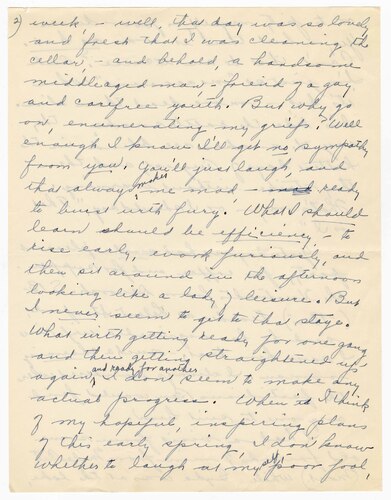 2) week - well, that day was so lovely
and fresh that I was cleaning the
cellar, - and behold, a handsome
middleaged man, - friend of a gay
and carefree youth. But why go
on, enumerating my griefs? Well
enough I know I'll get no sympathy
from you. You'll just laugh, and
that always makes me mad - mad ready
to burst with fury! What I should
learn should be efficiency, - to
rise early, work furiously, and
then sit around in the afternoon
looking like a lady of leisure. But
I never seem to get to that stage.
What with getting ready for one gang
and then getting straightened up
again, and ready for another I don't seem to make any
actual progress. When I think
of my hopeful, inspiring plans
of this early spring, I don't know
whether to laugh at my poor fool,